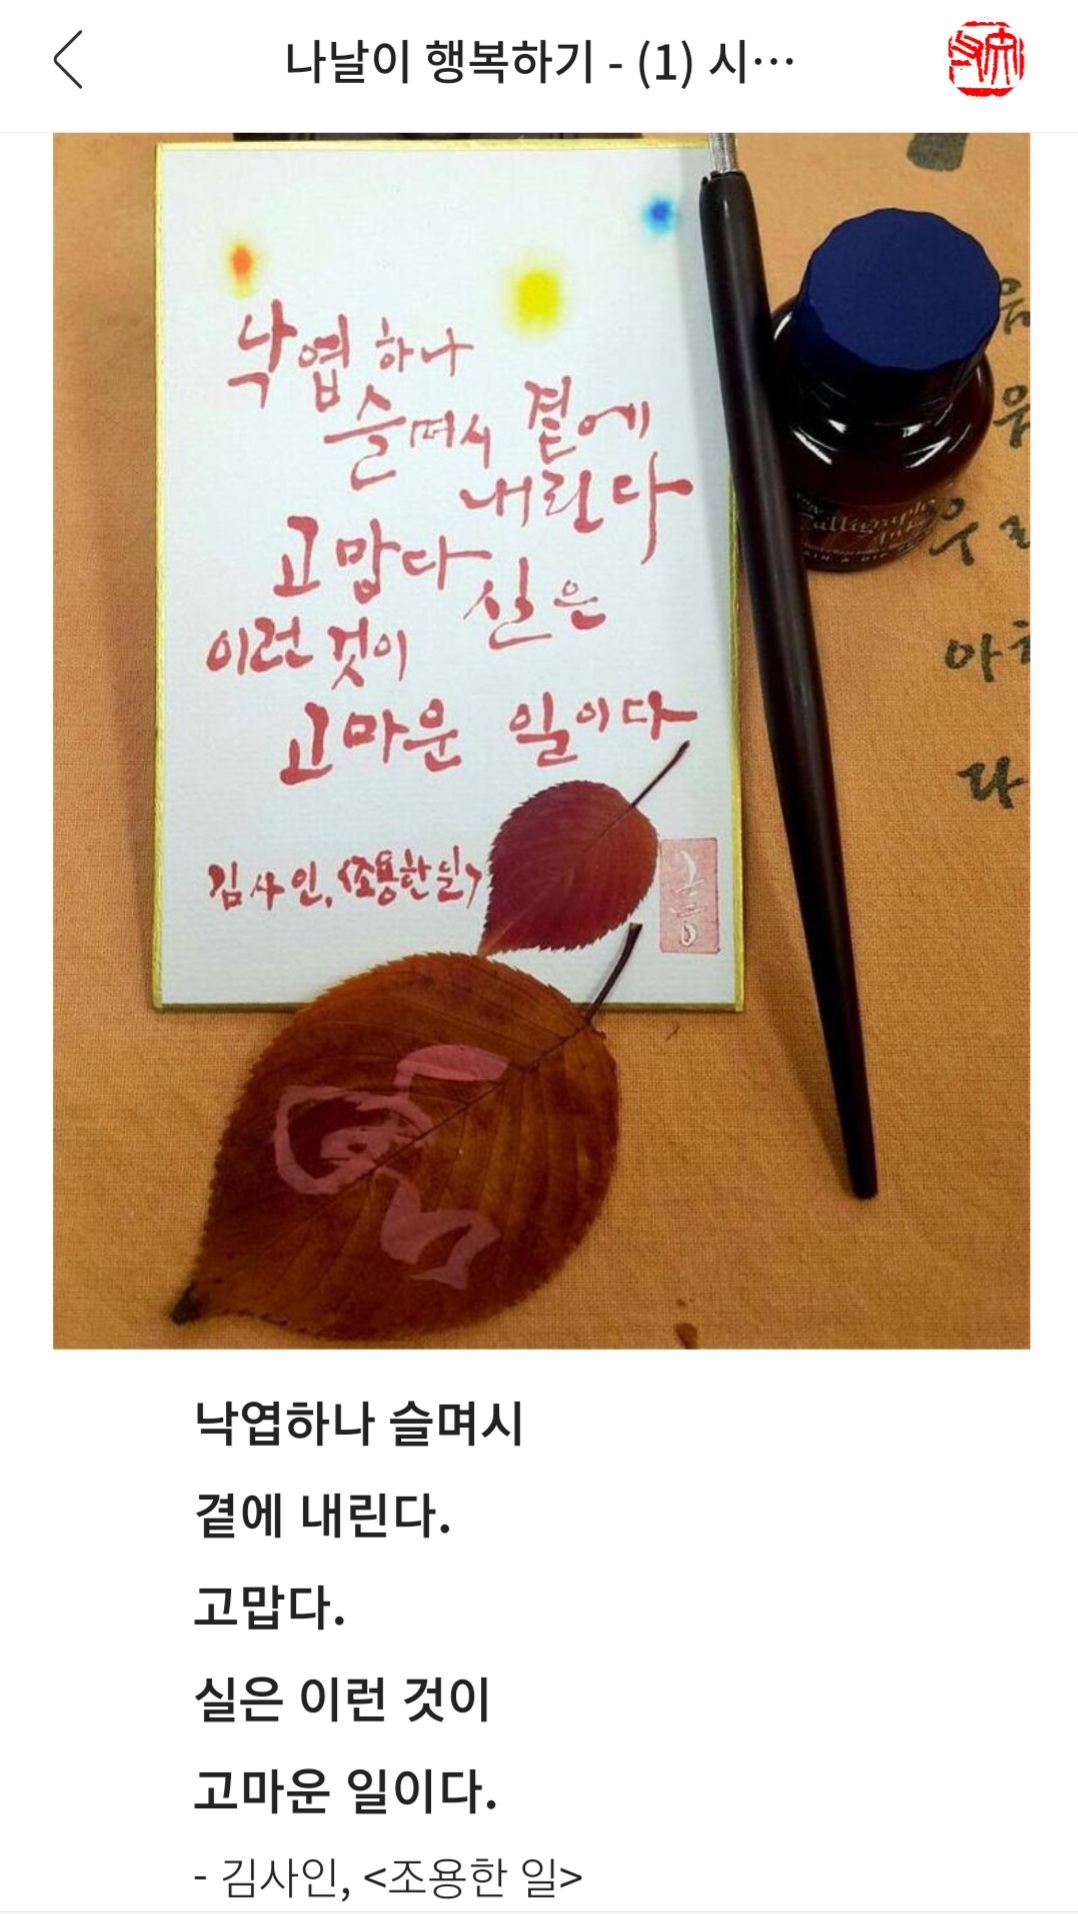 나날이 행복하기 - (1) 시…
낙엽 하나
슬며시 곁에
내린다
고맙다 실은
이런 것이
고마운 일이다
김사인, <조용한 일>
Calligraphy
Ink
우리
다
낙엽하나 슬며시
곁에 내린다.
고맙다.
실은 이런 것이
고마운 일이다.
- 김사인, <조용한 일>